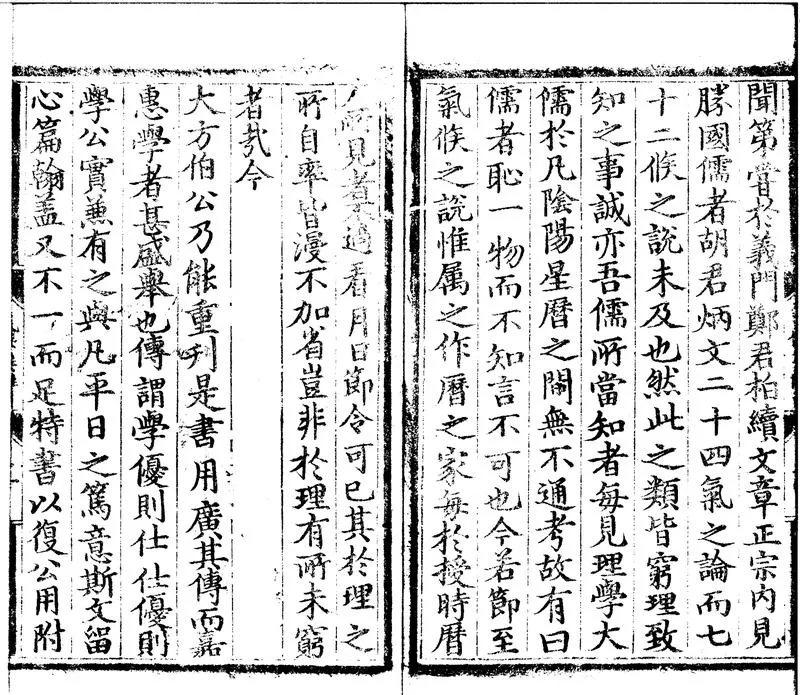 聞第嘗於義門鄭君柏續文章正宗內見
勝國儒者胡君炳文二十四氣之論而七
十二候之說未及也然此之類皆窮理致
知之事誠亦吾儒所當知者每見理學大
儒於凡陰陽星曆之閒無不通考故有曰
儒者恥一物而不知言不可也今若節至
氣候之說惟属之作曆之家每於授時曆
所見者不過看月日節令可已其於理之
所自率皆漫不加省豈非於理有所未窮
者㢤今
大方伯公乃能重刋是書用廣其傳而嘉
惠學者甚盛舉也傳謂學優則仕仕優則
學公實兼有之與凡平日之篤意斯文留
心篇翰盖又不一而足特書以復公用附